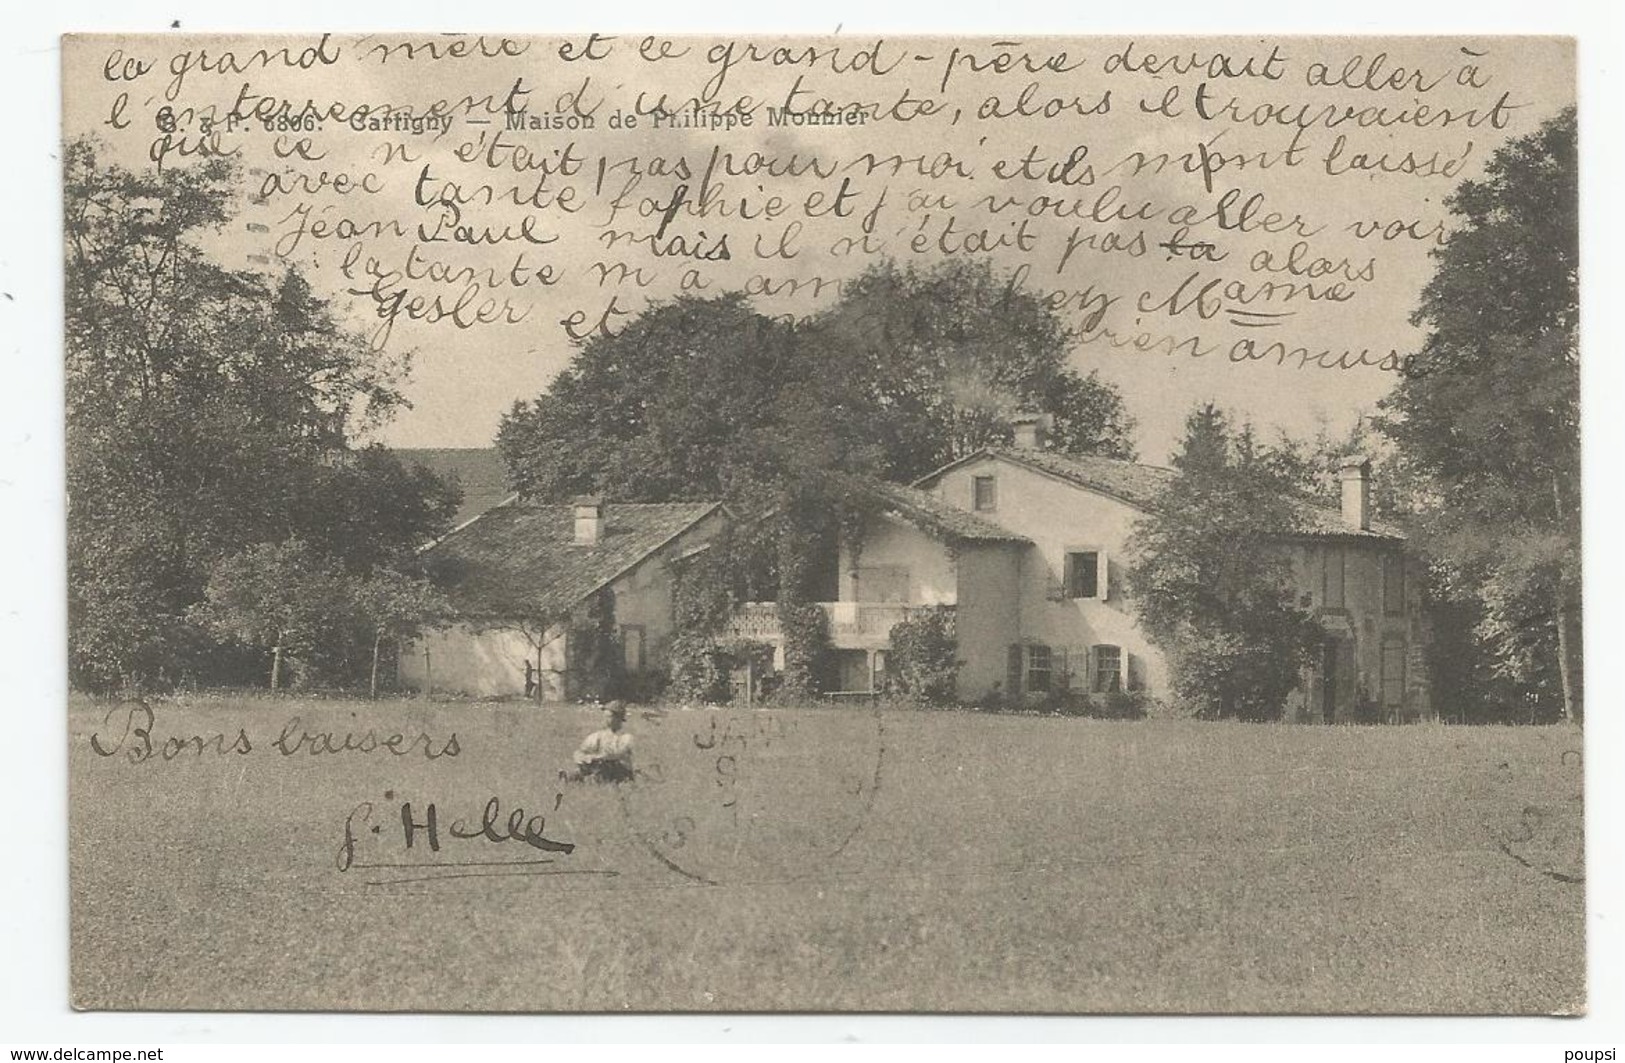 la grand mère et le grand-père devait aller à
l'enterrement d'une tante, alors il trouvaient
B. & F. 6806. Cartigny — Maison de Philippe Monnier
que ce n'était pas pour moi et ils mont laissé
avec tante Sophie et j'ai voulu aller voir
Jéan Paul mais il n'était pas la alors
la tante m'a chez Mame
Gesler et bien amusé
Bons baisers
JANV
9
S. Hellé
www.delcampe.net
poupsi